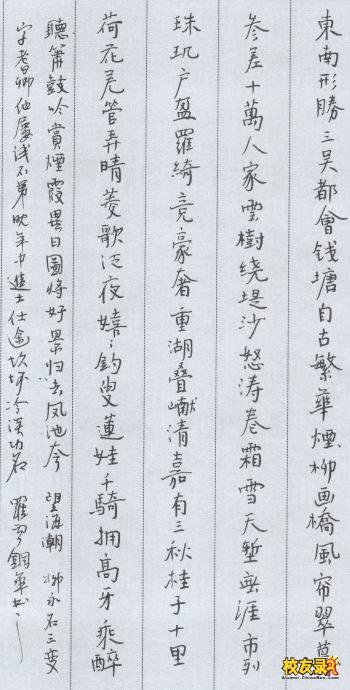 東南形勝三吴都會钱塘自古繁華煙柳画橋風帘翠幕
参差十萬人家雲樹绕堤沙怒涛卷霜雪天塹無涯市列
珠玑户盈羅綺竞豪奢重湖叠巘清嘉有三秋桂子十里
荷花羌管弄晴菱歌泛夜嬉〻釣叟蓮娃千騎拥高牙乘醉
聽箫鼓吟賞煙霞異日圖將好景归去凤池夸 望海潮 柳永名三变
字耆卿他屡试不第晚年中進士仕途坎坷冷漠功名 羅 鋼筆书
校友录
Alumni.ChinaRen.com